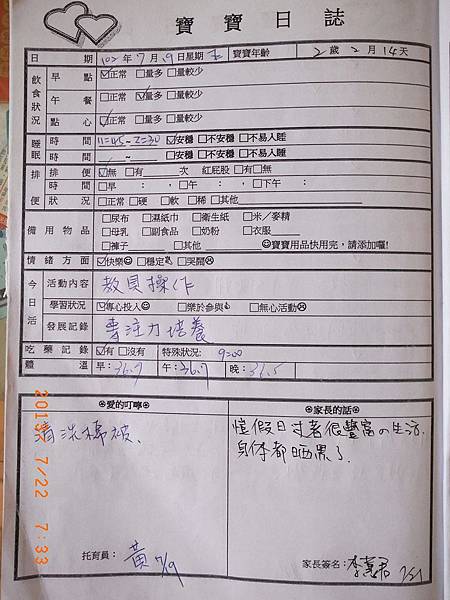 寶寶日誌
日期 102年7月19日星期五 寶寶年齡 2歲2月14天
飲食狀況
早點 ☑正常 □量多 □量較少
午餐 □正常 ☑量多 □量較少
點心 ☑正常 □量多 □量較少
睡眠
時間 11:45~2:30 ☑安穩 □不安穩 □不易人睡
時間 ~ □安穩 □不安穩 □不易人睡
排便
排便 ☑無 □有 次 紅屁股 □有□無
時間 □早 : ,□午 : ,□下午 :
狀況 □正常 □硬 □軟 □稀 □其他
備用物品
□尿布 □濕紙巾 □衛生紙 □米/麥精
□母乳 □副食品 □奶粉 □衣服
□褲子 □其他 ☺寶寶用品快用完,請添加喔!
情緒方面 ☑快樂☺ □穩定 □哭鬧☹
今日活
活動內容 教具操作
學習狀況 ☑專心投入☺ □樂於參與 □無心活動☹
發展記錄 專注力培養
吃藥記錄 ☑有 □沒有 特殊狀況: 9:00
體溫 早:36.7 午:36.7 晚:36.5
⊛愛的叮嚀⊛
清洗棉被、
托育員: 黃 7/19
⊛家長的話⊛
愷假日過著很豐富の生活,
身体都晒黑了.
家長簽名:
2013/7/22 7:33